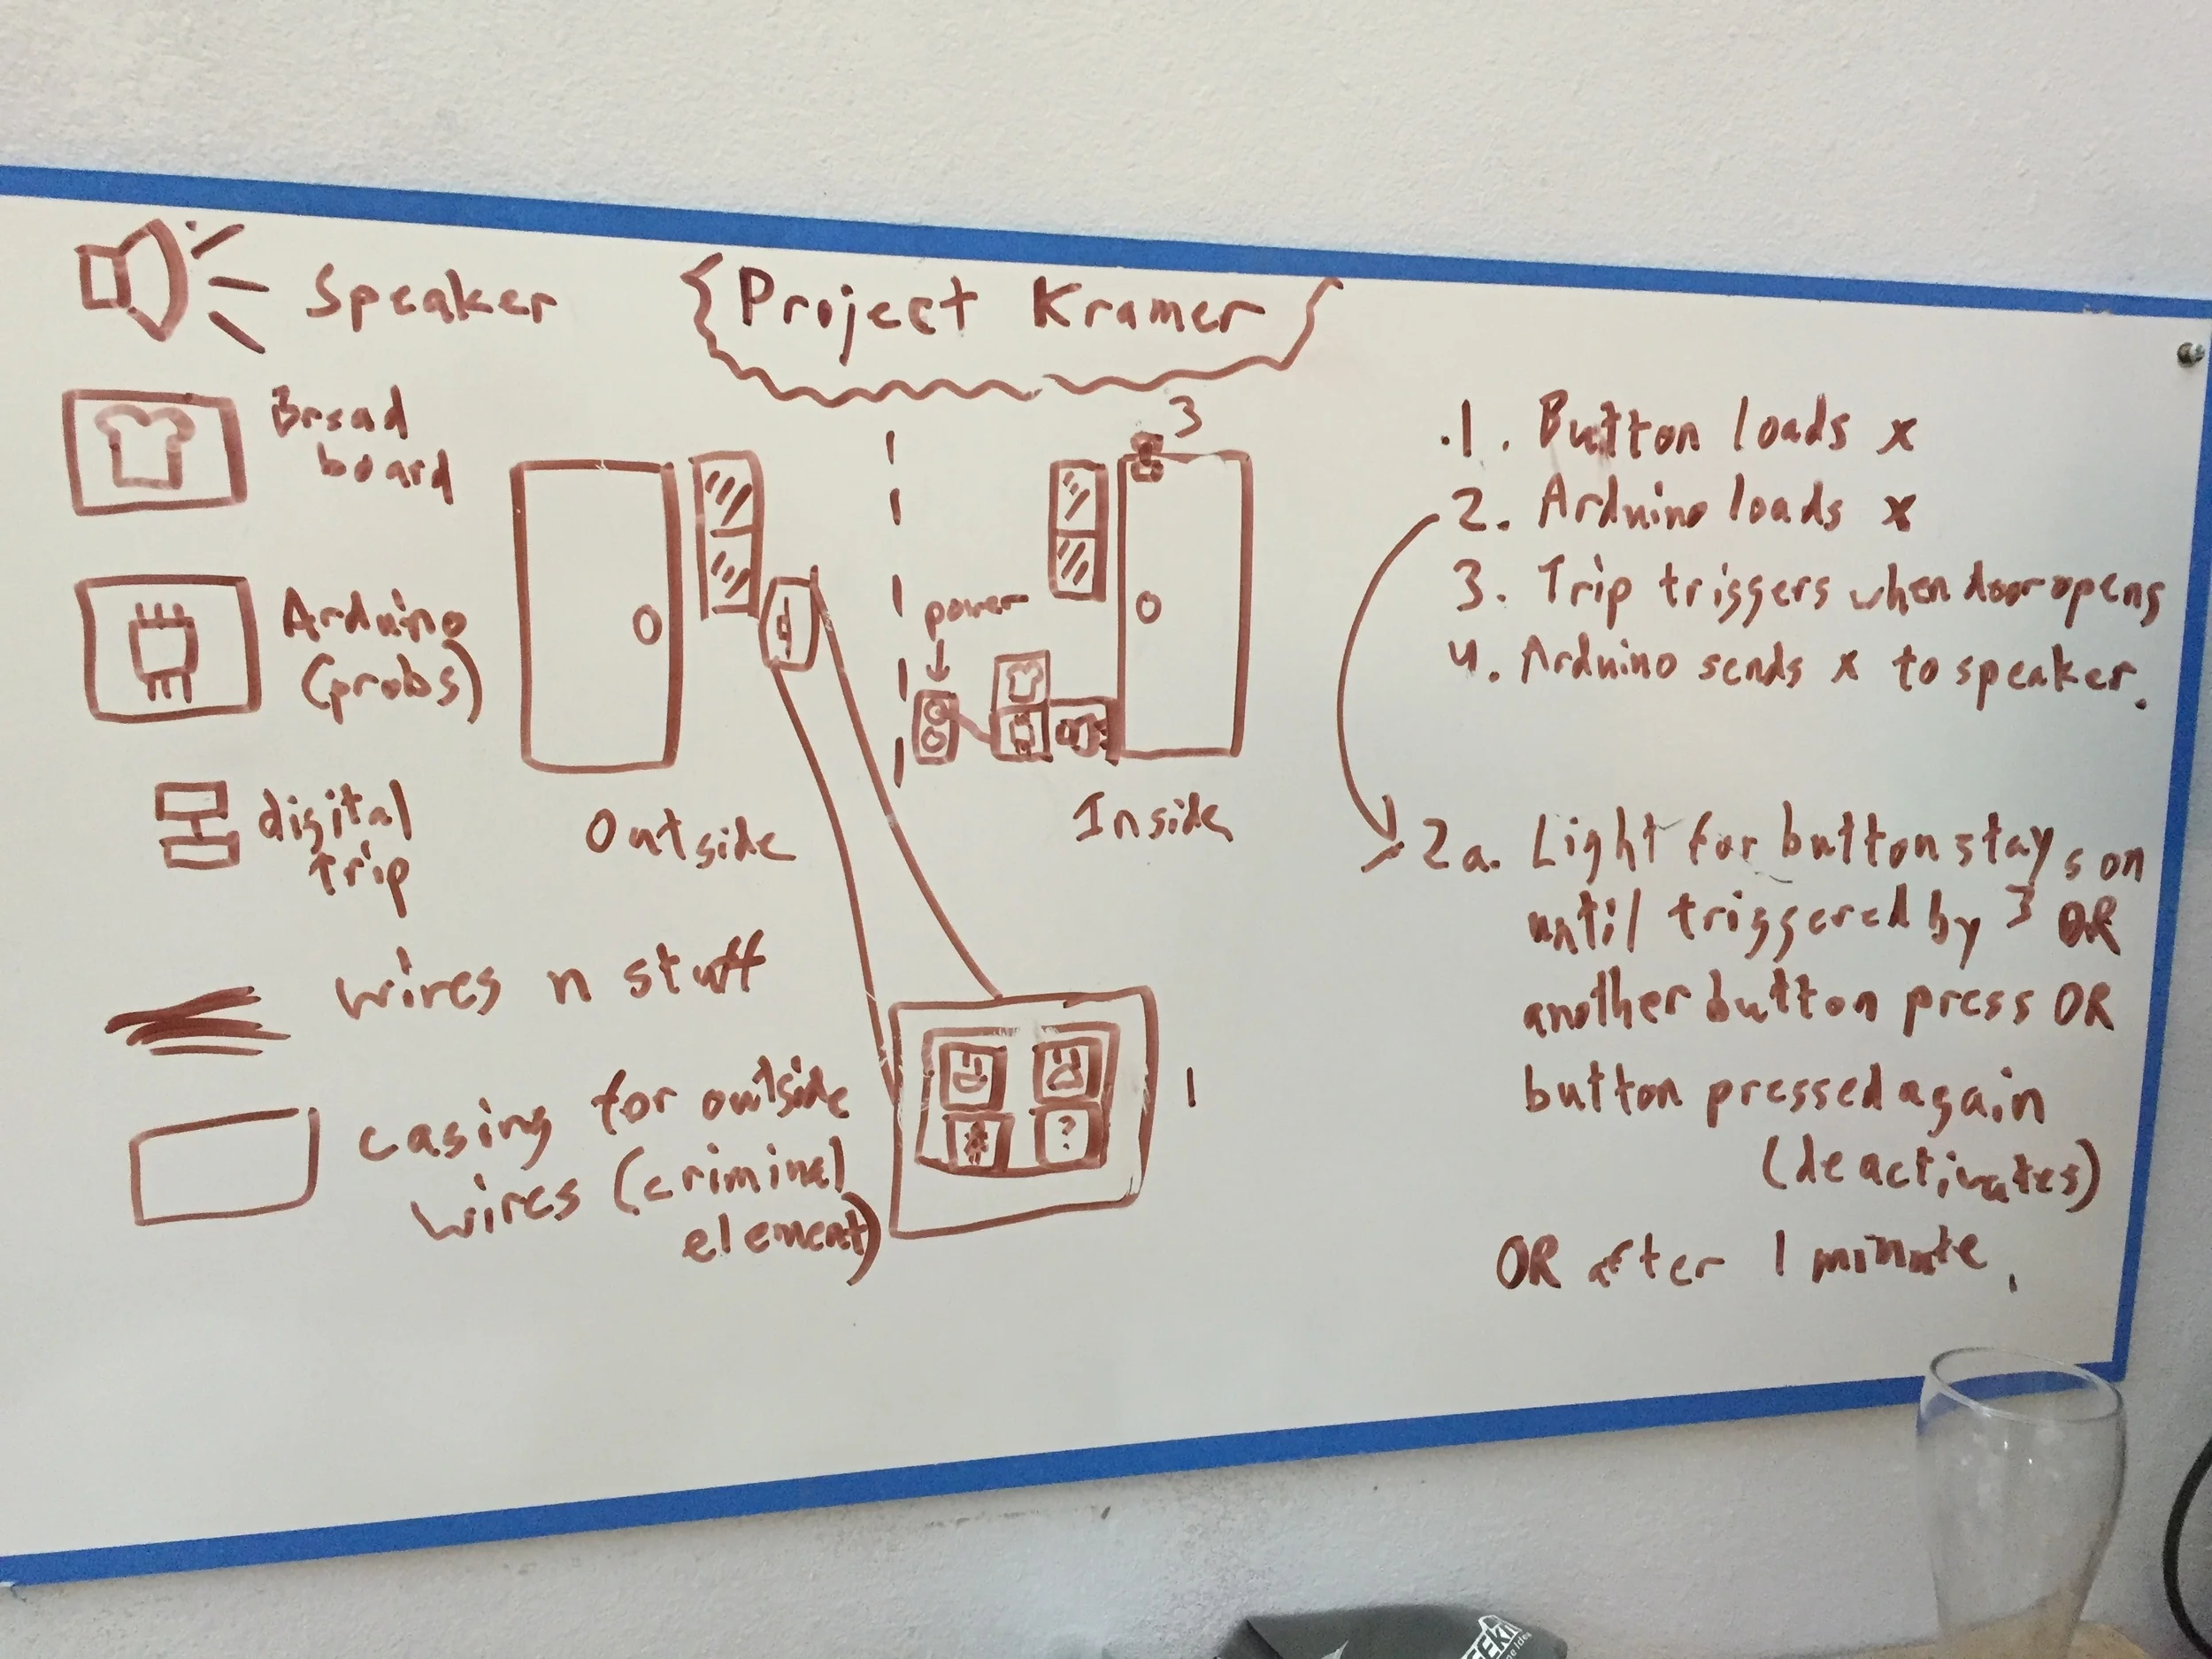 Speaker
Project Kramer
Bread
board
Arduino
(probs)
digital
trip
wires n stuff
casing for outside
wires (criminal
element)
Outside
power
3
Inside
1
?
1. Button loads x
2. Arduino loads x
3. Trip triggers when door opens
4. Arduino sends x to speaker.
2a. Light for button stays on
until triggered by 3 OR
another button press OR
button pressed again
(deactivates)
OR after 1 minute.